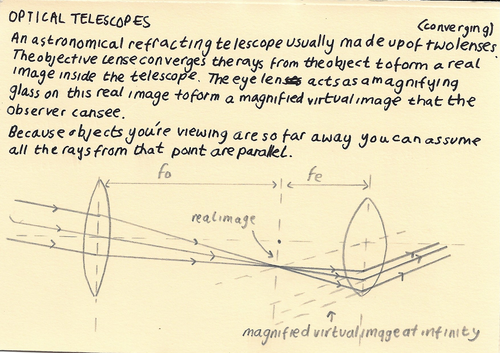 OPTICAL TELESCOPES
(converging)
An astronomical refracting telescope usually made up of two lenses.
The objective lense converges the rays from the object to form a real
image inside the telescope. The eye lens acts as a magnifying
glass on this real image to form a magnified virtual image that the
observer can see.
Because objects you're viewing are so far away you can assume
all the rays from that point are parallel.
fo
fe
real image
magnified virtual image at infinity